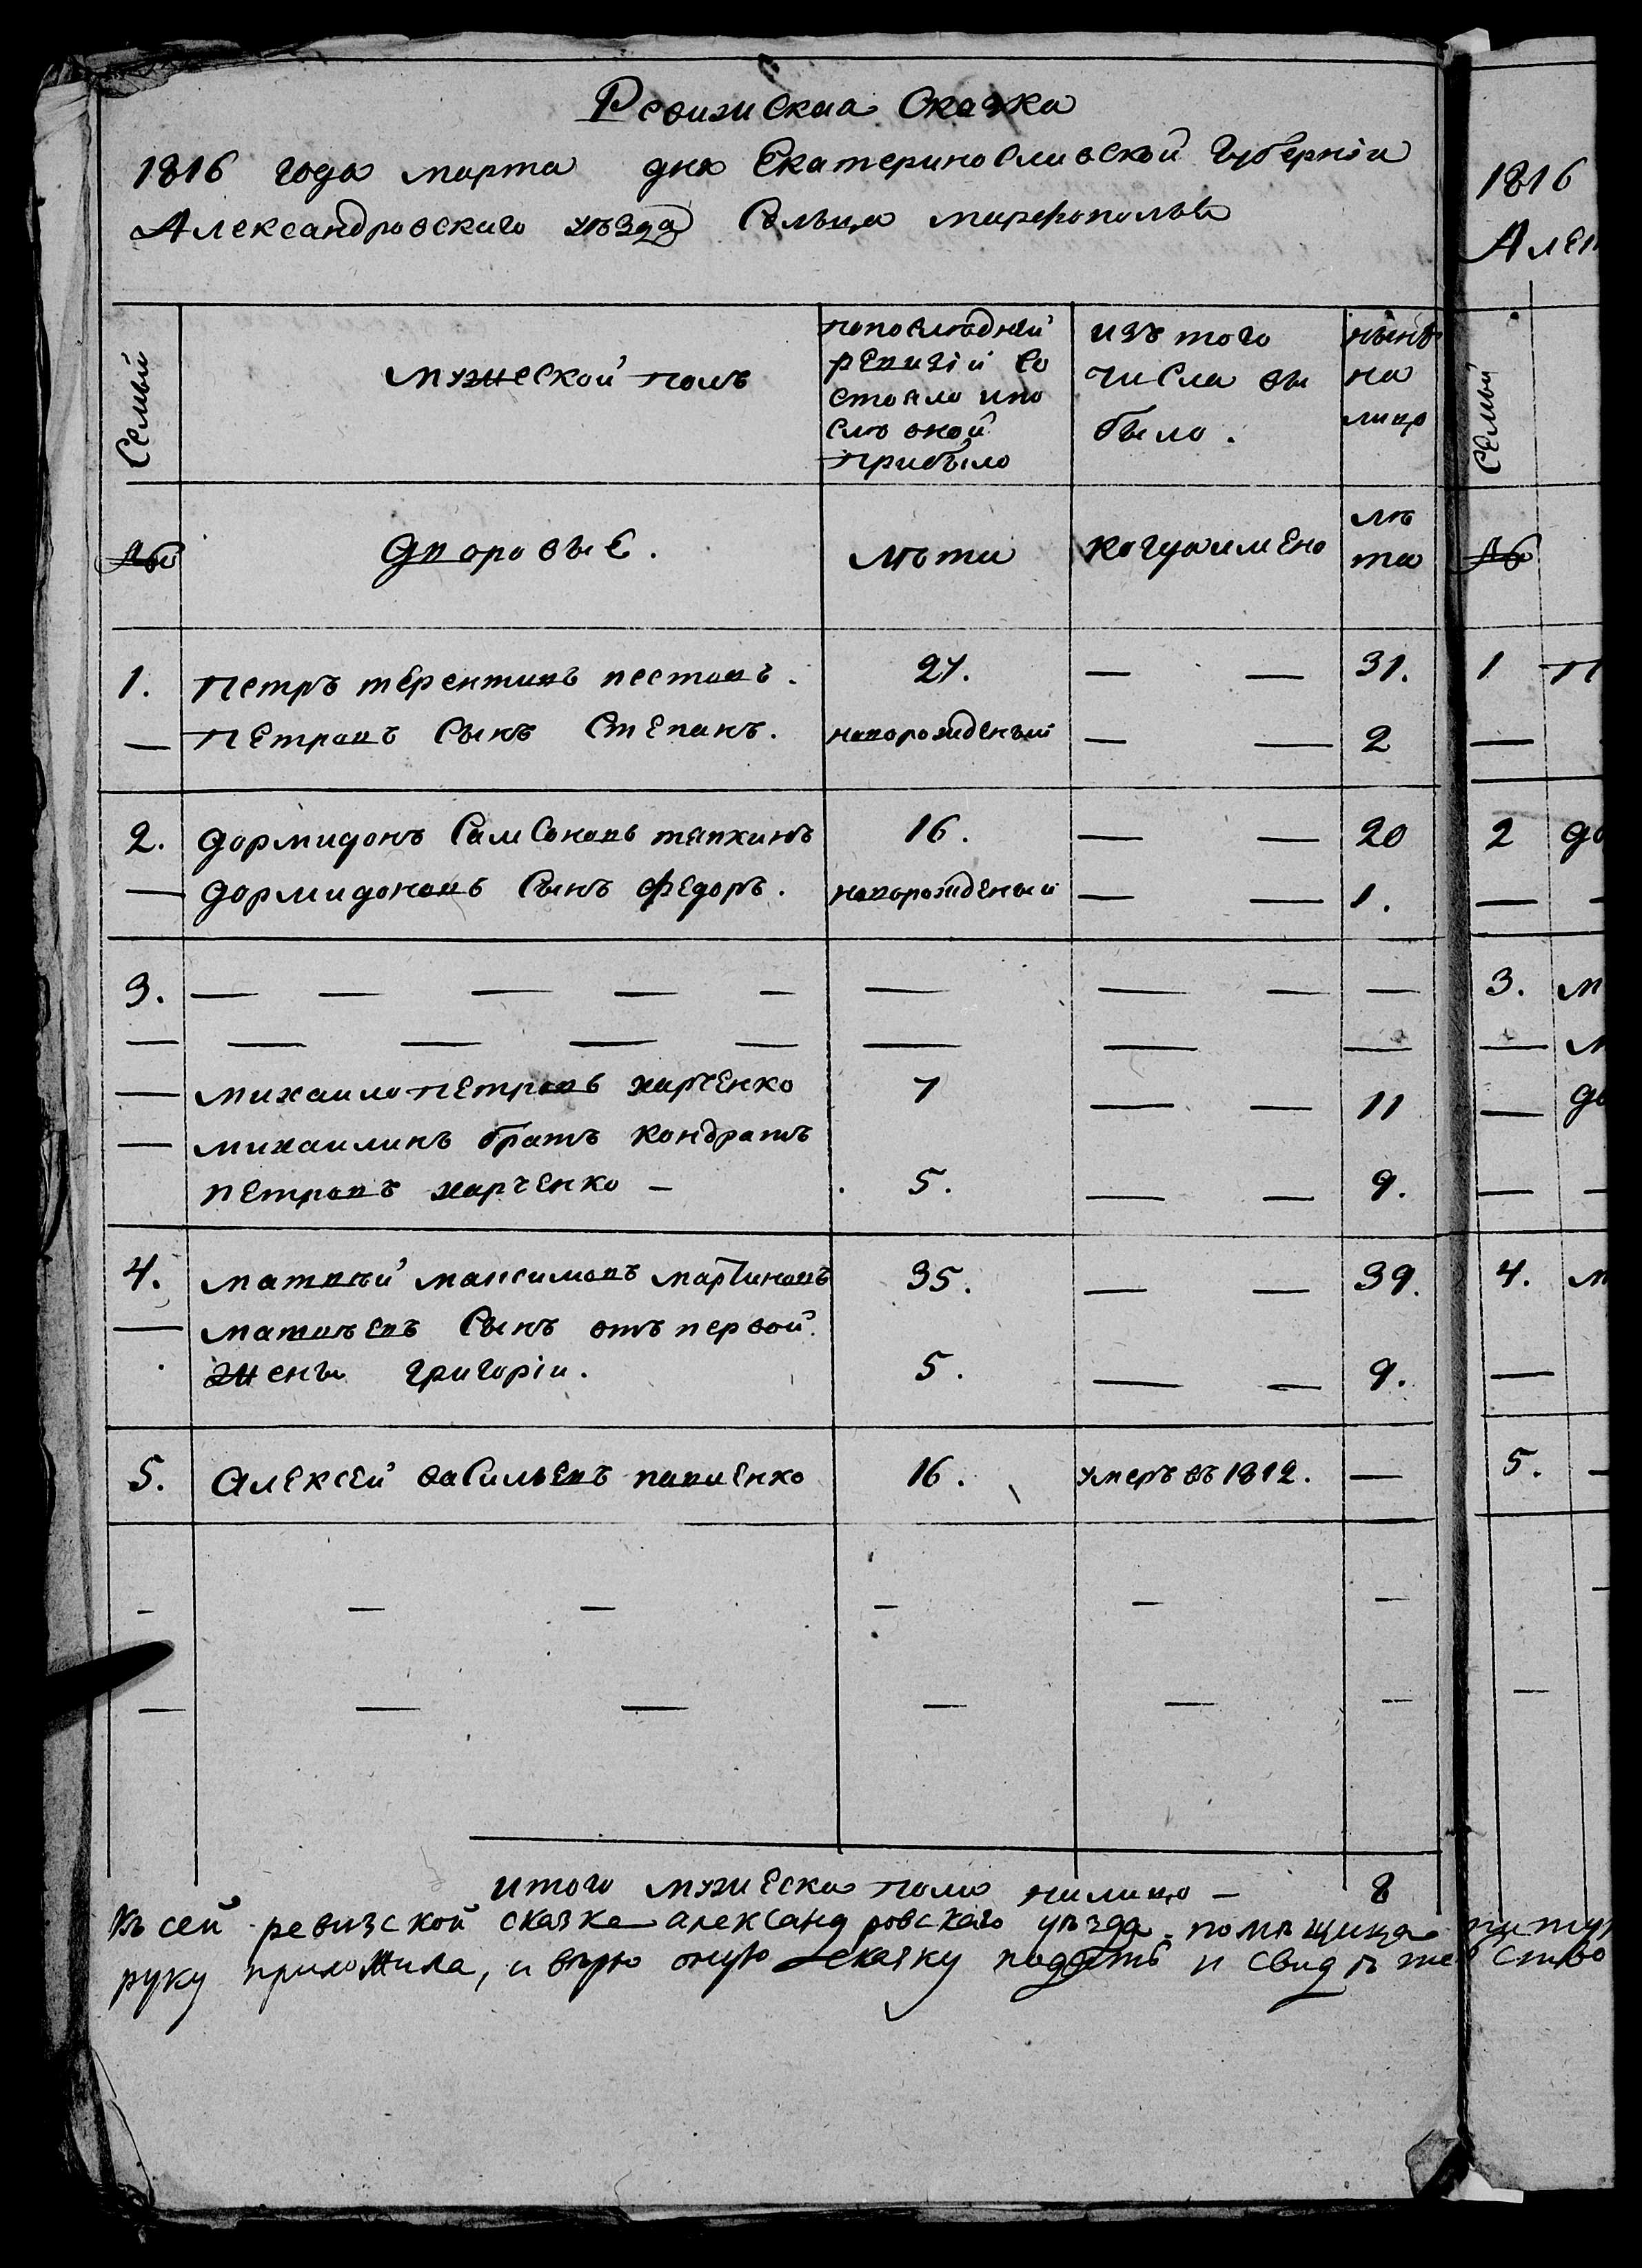 Ревизская Сказка
1816 года марта дня Екатеринославской Губерніи
Александровского уѣзда Сельца марфополья
1816
Алек
Семьи
мужеской полъ
попослѣдней
ревизіи со
стояло ипо
слѣ оной
прибыло
изъ того
числа вы
было.
нынѣ
на
лицо
Семьи
№
дворовые.
лѣта
когдаимено
лѣ
та
№
1. Петръ терентиевъ пестовъ. 27. — — 31. 1 П
— Петровъ Сынъ Степанъ. новорожденый — — 2 —
2. дормидонъ Самсоновъ тяпкинъ 16. — — 20 2 до
— дормидоновъ Сынъ Федоръ. новорожденый — — 1. —
3. — — — — — — — — — 3. м
— — — — — — — — — м
— михаило Петровъ харченко 7 — — 11 — до
— михаилинъ братъ Кондратъ
Петровъ харченко — 5. — — 9. — —
4. матвей максимовъ мартиновъ 35. — — 39. 4. м
— матвѣевъ Сынъ отъ первой
жены григоріи. 5. — — 9. —
5. Алексей васильевъ 16. умеръ въ 1812. — 5. —
итого мужеска пола налицо — 8
Къ сей ревизской сказке александровского уѣзда помѣщица
руку приложила, и вѣрю оную сказку подать и свидѣтельство